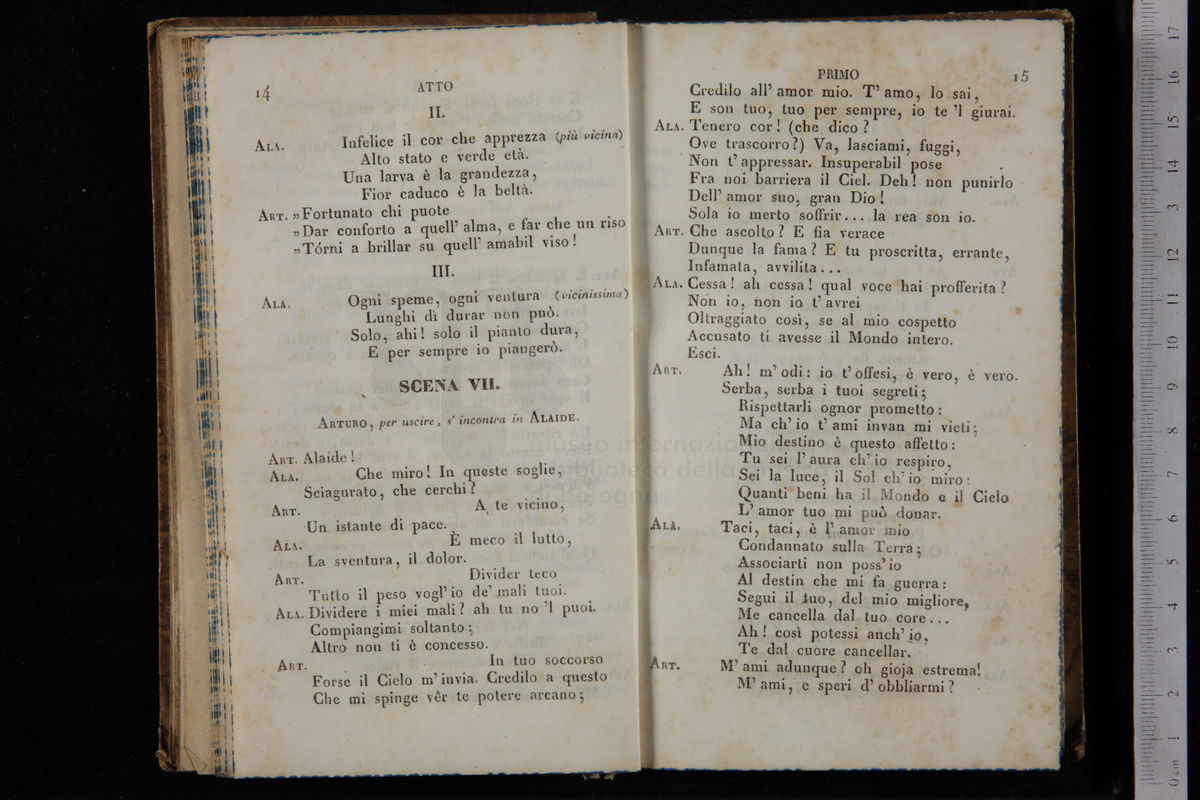 14
ATTO
II.
ALA. Infelice il cor che apprezza (più vicina)
Alto stato e verde età.
Una larva è la grandezza,
Fior caduco è la beltà.
ART. „Fortunato chi puote
„Dar conforto a quell' alma, e far che un riso
„Tórni a brillar su quell' amabil viso!
III.
ALA. Ogni speme, ogni ventura (vicinissima)
Lunghi dì durar non può.
Solo, ahi! solo il pianto dura,
E per sempre io piangerò.
SCENA VII.
ARTURO, per uscire, s' incontra in ALAIDE.
ART. Alaíde!
ALA. Che miro! In queste soglie,
Sciagurato, che cerchi?
ART. A te vicino,
Un istante di pace.
ALA. È meco il lutto,
La sventura, il dolor.
ART. Divider teco
Tutto il peso vogl' io de' mali tuoi.
ALA. Dividere i miei mali? ah tu no 'l puoi.
Compiangimi soltanto;
Altro non ti è concesso.
ART. In tuo soccorso
Forse il Cielo m' invia. Credilo a questo
Che mi spinge vêr te potere arcano;
PRIMO
15
Credilo all' amor mio. T' amo, lo sai,
E son tuo, tuo per sempre, io te 'l giurai.
ALA. Tenero cor! (che dico?
Ove trascorro?) Va, lasciami, fuggi,
Non t' appressar. Insuperabil pose
Fra noi barriera il Ciel. Deh! non punirlo
Dell' amor suo, gran Dio!
Sola io merto soffrir... la rea son io.
ART. Che ascolto? E fia verace
Dunque la fama? E tu proscritta, errante,
Infamata, avvilita...
ALA. Cessa! ah cessa! qual voce hai profferita?
Non io, non io t' avrei
Oltraggiato così, se al mio cospetto
Accusato ti avesse il Mondo intero.
Esci.
ART. Ah! m' odi: io t' offesi, è vero, è vero.
Serba, serba i tuoi segreti;
Rispettarli ognor prometto:
Ma ch' io t' ami invan mi vieti;
Mio destino è questo affetto:
Tu sei l' aura ch' io respiro,
Sei la luce, il Sol ch' io miro:
Quanti beni ha il Mondo e il Cielo
L' amor tuo mi può donar.
ALA. Taci, taci, è l' amor mio
Condannato sulla Terra;
Associarti non poss' io
Al destin che mi fa guerra:
Segui il tuo, del mio migliore,
Me cancella dal tuo core...
Ah! così potessi anch' io,
Te dal cuore cancellar.
ART. M' ami adunque? oh gioja estrema!
M' ami, e speri d' obbliarmi?
0 cm 1 2 3 4 5 6 7 8 9 10 11 12 13 14 15 16 17